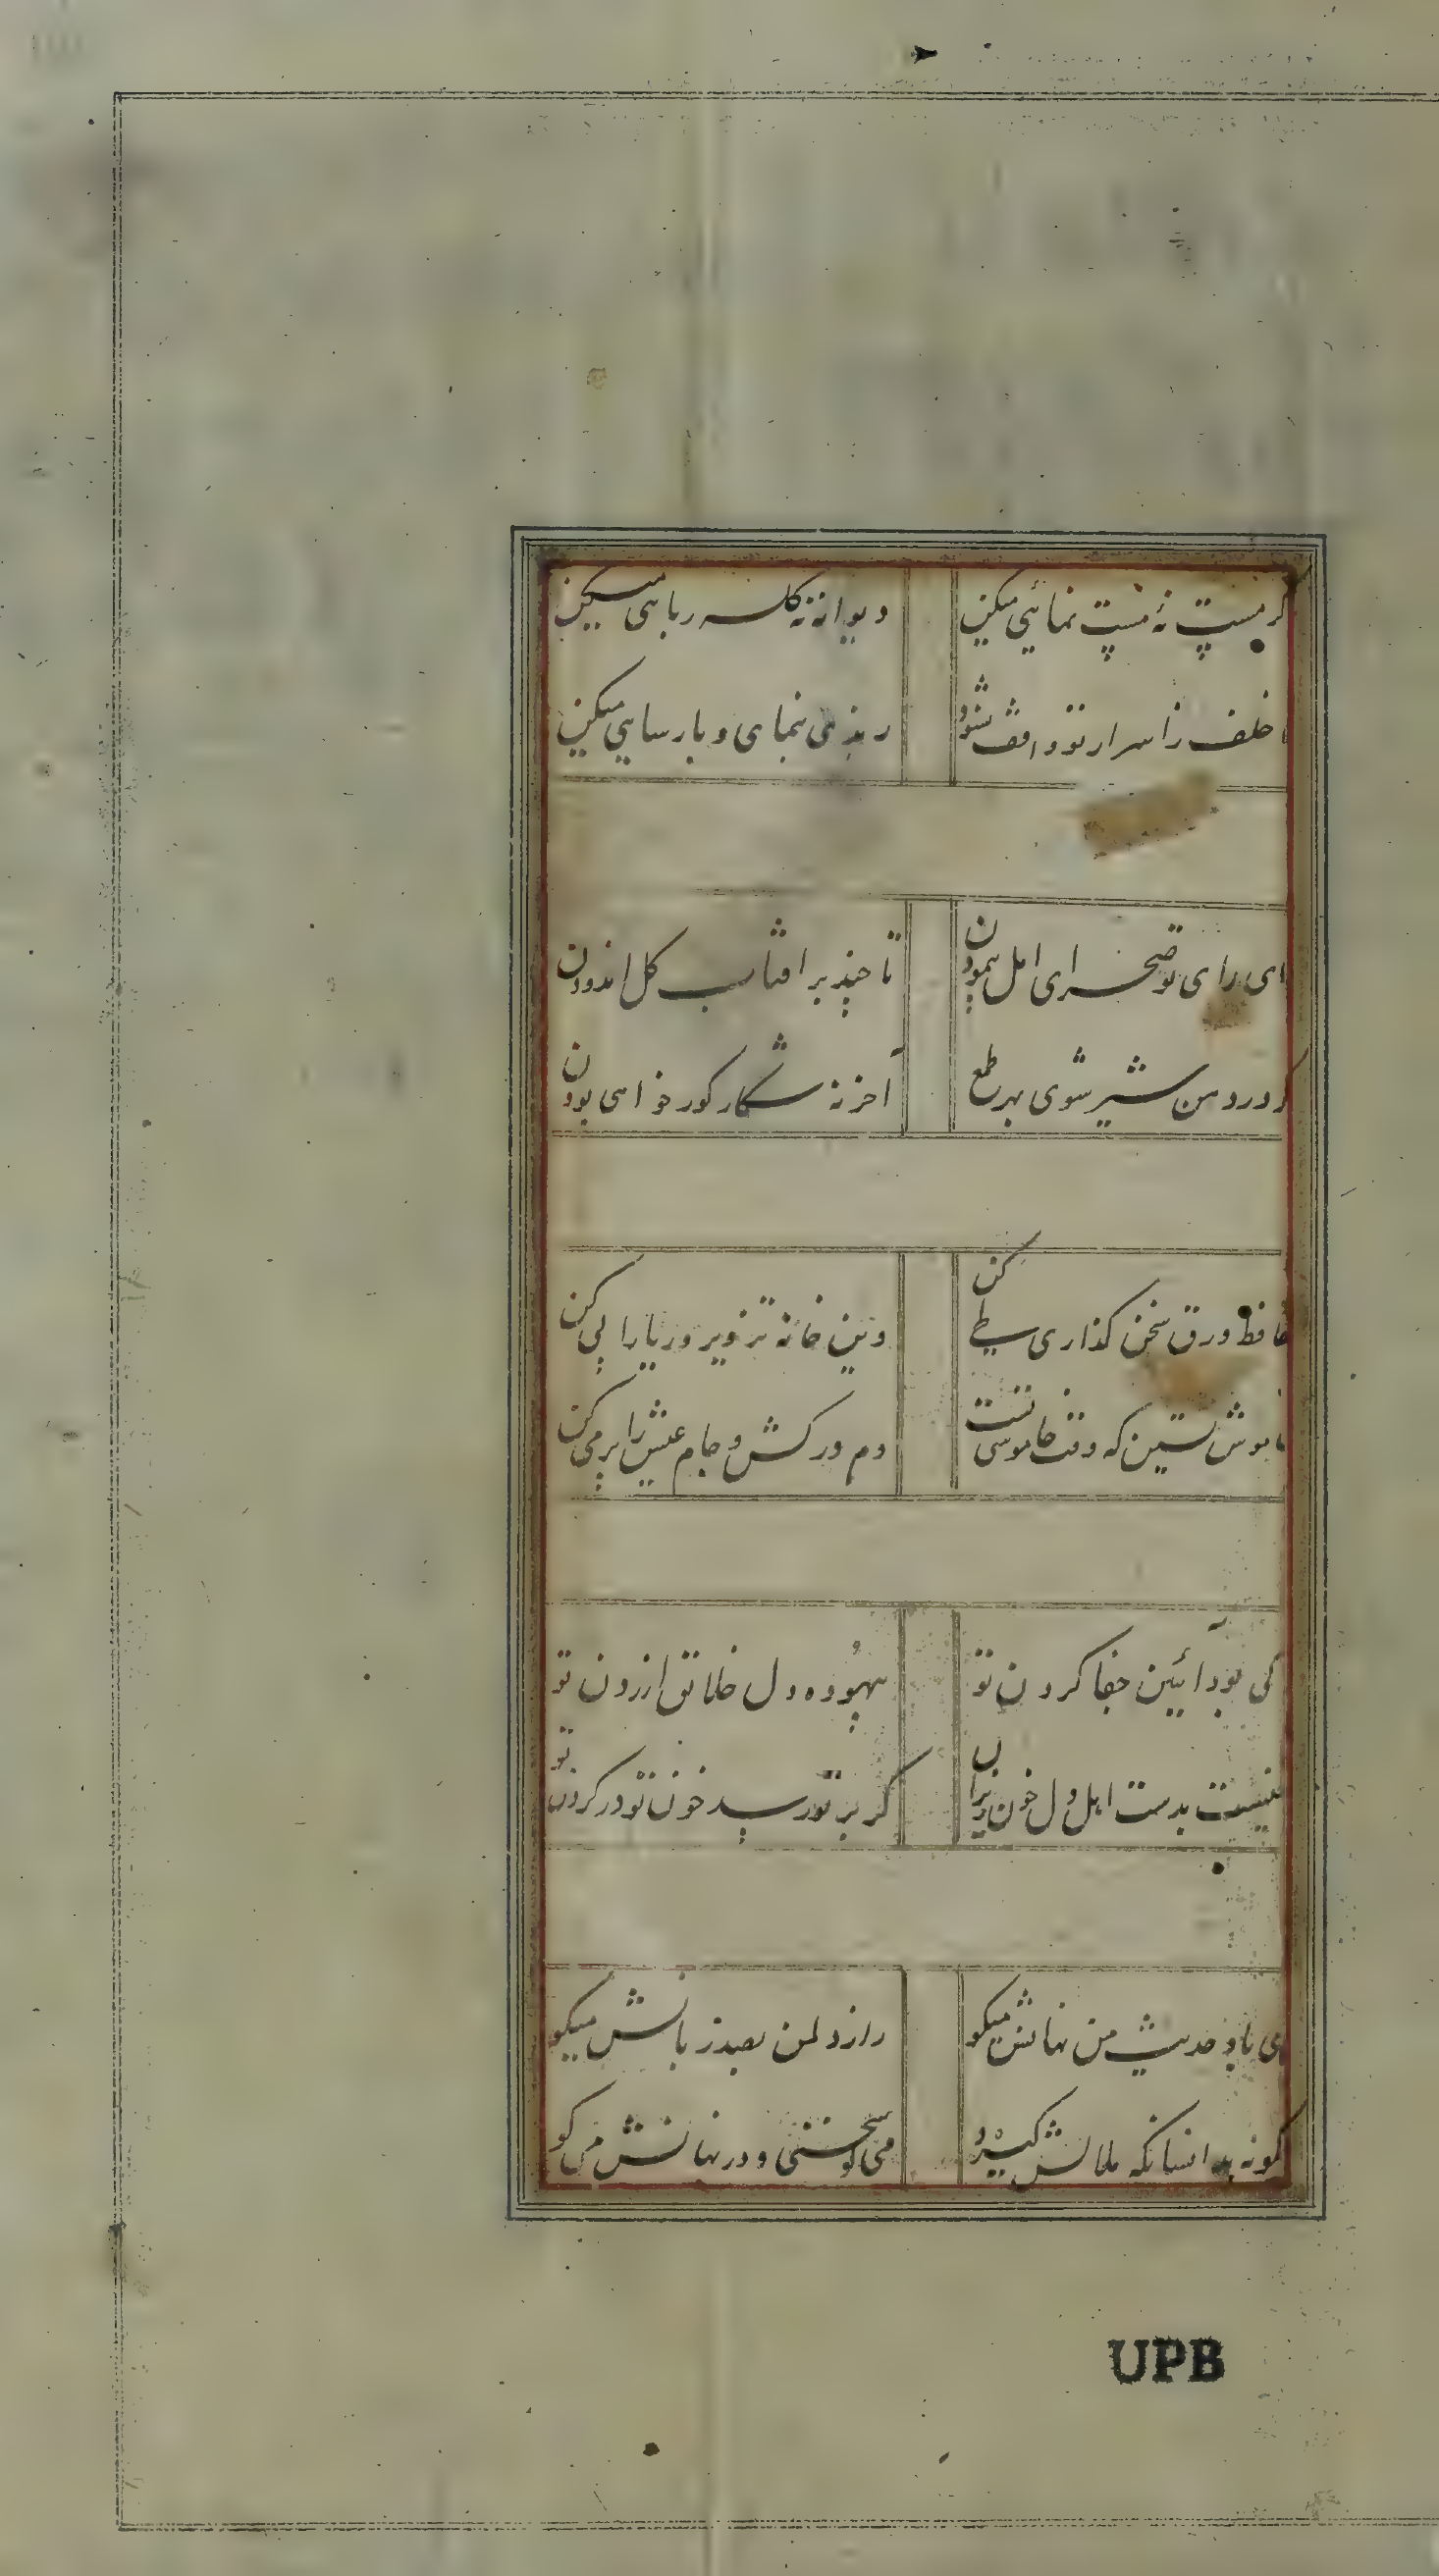 کر مست نهٔ مست نمائی میکن دیوانه نه کله ربایی میکن
خلق ز اسرار تو واقف نشود رندی می نمای و پارسایی میکن
ای رای تو صحرای امل پیمودن تا چند بر افتاب کل اندودن
کر در دهن شیر شوی بهر طمع آخر نه شکار کور خواهی بودن
حافظ ورق سخن گذاری طی کن وین خانه تزویر و ریا را پی کن
خاموش نشین که وقت خاموشی تست دم در کش و جام عیش را پر می کن
کی بود آئین جفا کردن تو بیهوده دل خلایق ازردن تو
بدست اهل دل خون ریزان کر بر تو رسد خون تو در کردن تو
با او حدیث من نهانش میکو راز دل من بصد زبانش میکو
نه بدانسانکه ملالش کیرد می کو سخنی و در نهانش می کو
UPB